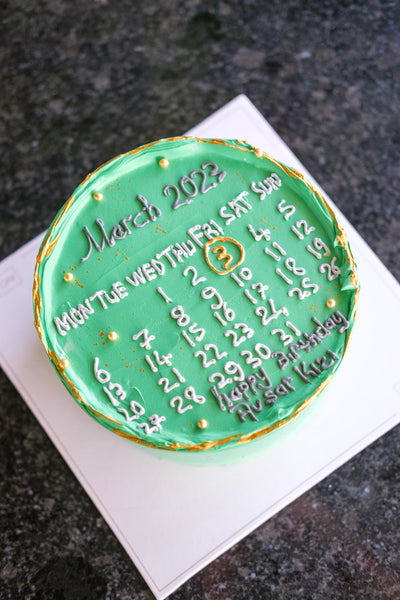 March 2023
MON TUE WED THU FRI SAT SUN
1 2 3 4 5
6 7 8 9 10 11 12
13 14 15 16 17 18 19
20 21 22 23 24 25 26
27 28 29 30 31
Happy Birthday